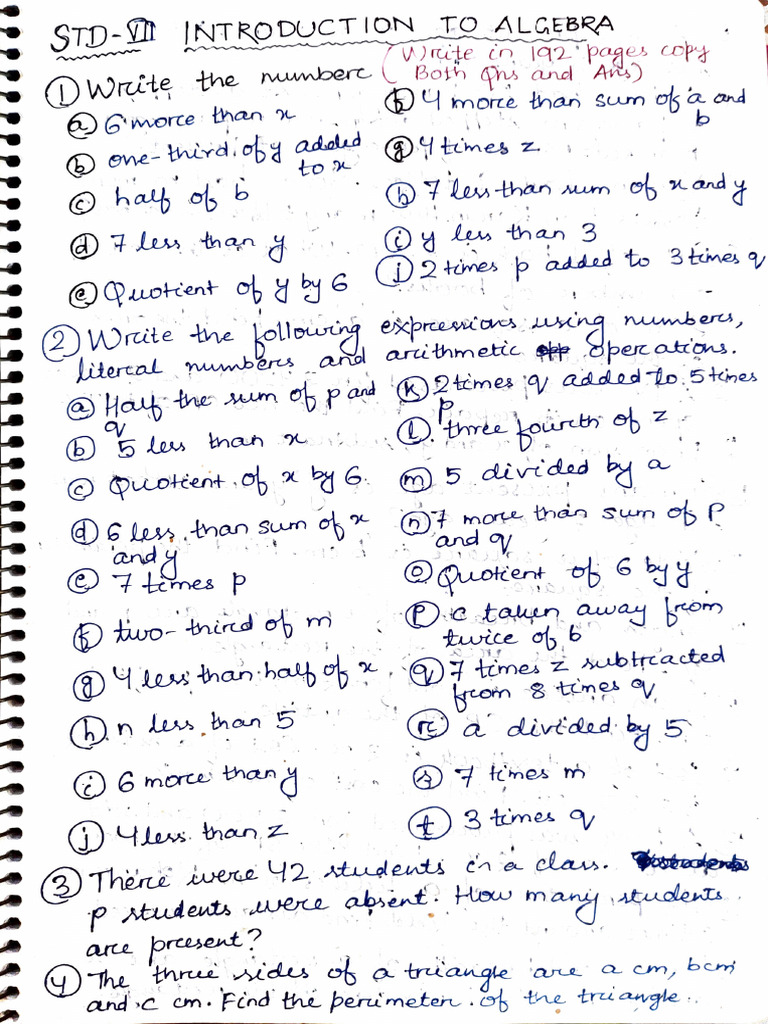 STD-VII INTRODUCTION TO ALGEBRA
(Write in 192 pages copy
Both Qns and Ans)
① Write the number
ⓐ 6 more than x
ⓑ one-third of y added
to x
ⓒ half of b
ⓓ 7 less than y
ⓔ Quotient of y by 6
ⓕ 4 more than sum of a and
b
ⓖ 4 times z
ⓗ 7 less than sum of x and y
ⓘ y less than 3
ⓙ 2 times p added to 3 times q
② Write the following expressions using numbers,
literal numbers and arithmetic operations.
ⓐ Half the sum of p and
q
ⓑ 5 less than x
ⓒ Quotient of x by 6
ⓓ 6 less than sum of x
and y
ⓔ 7 times p
ⓕ two-third of m
ⓖ 4 less than half of x
ⓗ n less than 5
ⓘ 6 more than y
ⓙ 4 less than z
ⓚ 2 times q added to 5 times
p
ⓛ three fourth of z
ⓜ 5 divided by a
ⓝ 7 more than sum of p
and q
ⓞ Quotient of 6 by y
ⓟ c taken away from
twice of b
ⓠ 7 times z subtracted
from 8 times q
ⓡ a divided by 5
ⓢ 7 times m
ⓣ 3 times q
③ There were 42 students in a class.
p students were absent. How many students
are present?
④ The three sides of a triangle are a cm, b cm
and c cm. Find the perimeter of the triangle.